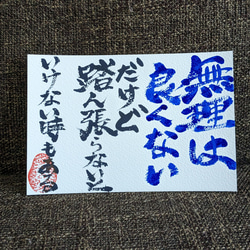 無理は
良くない
だけど
踏ん張らないと
いけない時もある